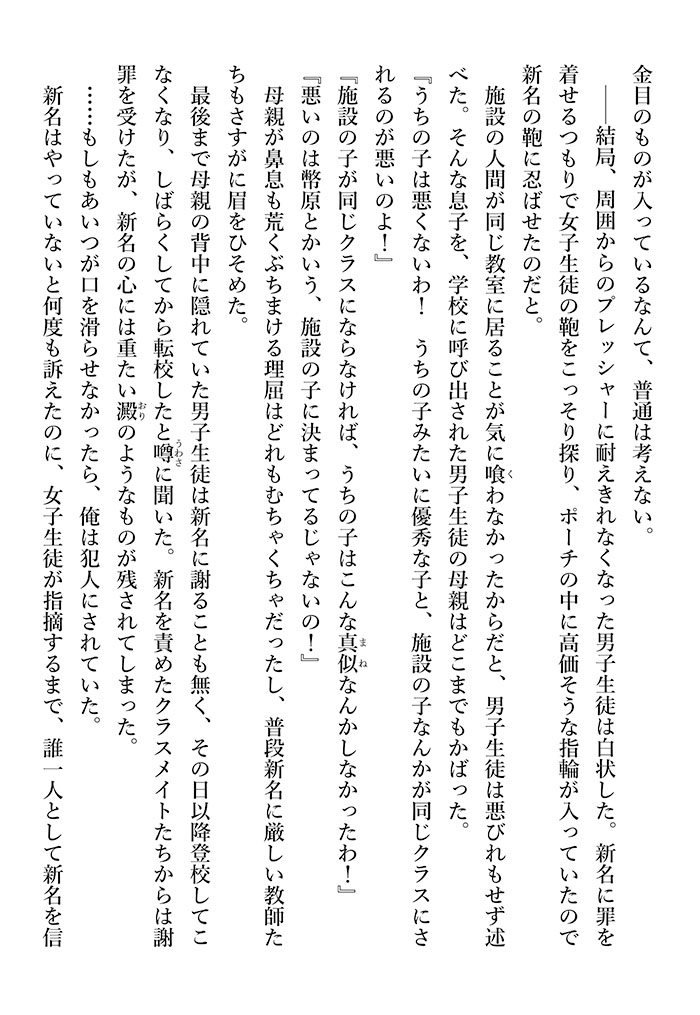 金目のものが入っているなんて、普通は考えない。
　――結局、周囲からのプレッシャーに耐えきれなくなった男子生徒は白状した。新名に罪を
着せるつもりで女子生徒の鞄をこっそり探り、ポーチの中に高価そうな指輪が入っていたので
新名の鞄に忍ばせたのだと。
　施設の人間が同じ教室に居ることが気に喰わなかったからだと、男子生徒は悪びれもせず述
べた。そんな息子を、学校に呼び出された男子生徒の母親はどこまでもかばった。
『うちの子は悪くないわ！　うちの子みたいに優秀な子と、施設の子なんかが同じクラスにさ
れるのが悪いのよ！』
『施設の子が同じクラスにならなければ、うちの子はこんな真似なんかしなかったわ！』
『悪いのは幣原とかいう、施設の子に決まってるじゃないの！』
　母親が鼻息も荒くぶちまける理屈はどれもむちゃくちゃだったし、普段新名に厳しい教師た
ちもさすがに眉をひそめた。
　最後まで母親の背中に隠れていた男子生徒は新名に謝ることも無く、その日以降登校してこ
なくなり、しばらくしてから転校したと噂に聞いた。新名を責めたクラスメイトたちからは謝
罪を受けたが、新名の心には重たい澱のようなものが残されてしまった。
　……もしもあいつが口を滑らせなかったら、俺は犯人にされていた。
　新名はやっていないと何度も訴えたのに、女子生徒が指摘するまで、誰一人として新名を信